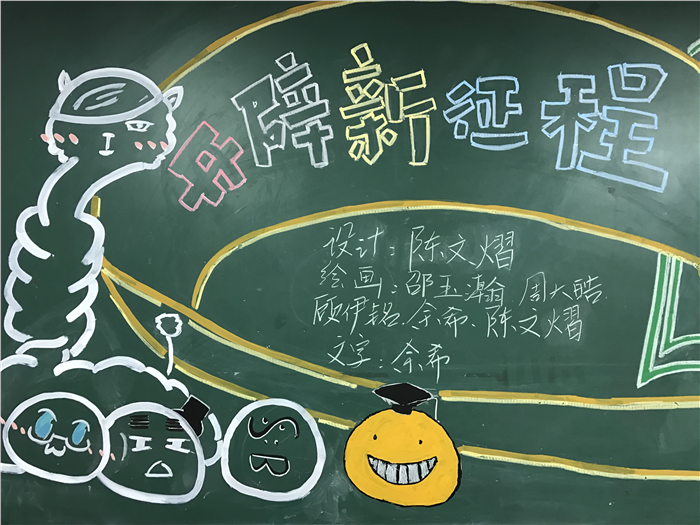 开辟新征程
设计:陈文熠
绘画:邵玉瀚 周大皓
顾伊铭 余希 陈文熠
文字:余希
SB